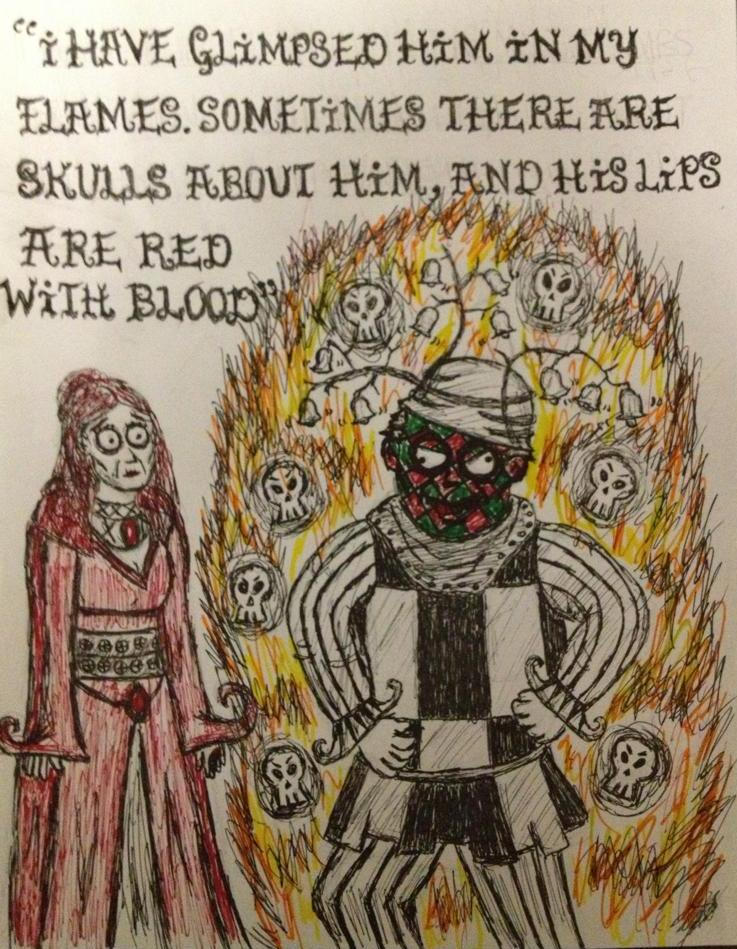 “i HAVE GLiMPSED HiM iN MY
FLAMES. SOMETiMES THERE ARE
SKULLS ABOUT HiM, AND HiS LiPS
ARE RED
WiTH BLOOD”